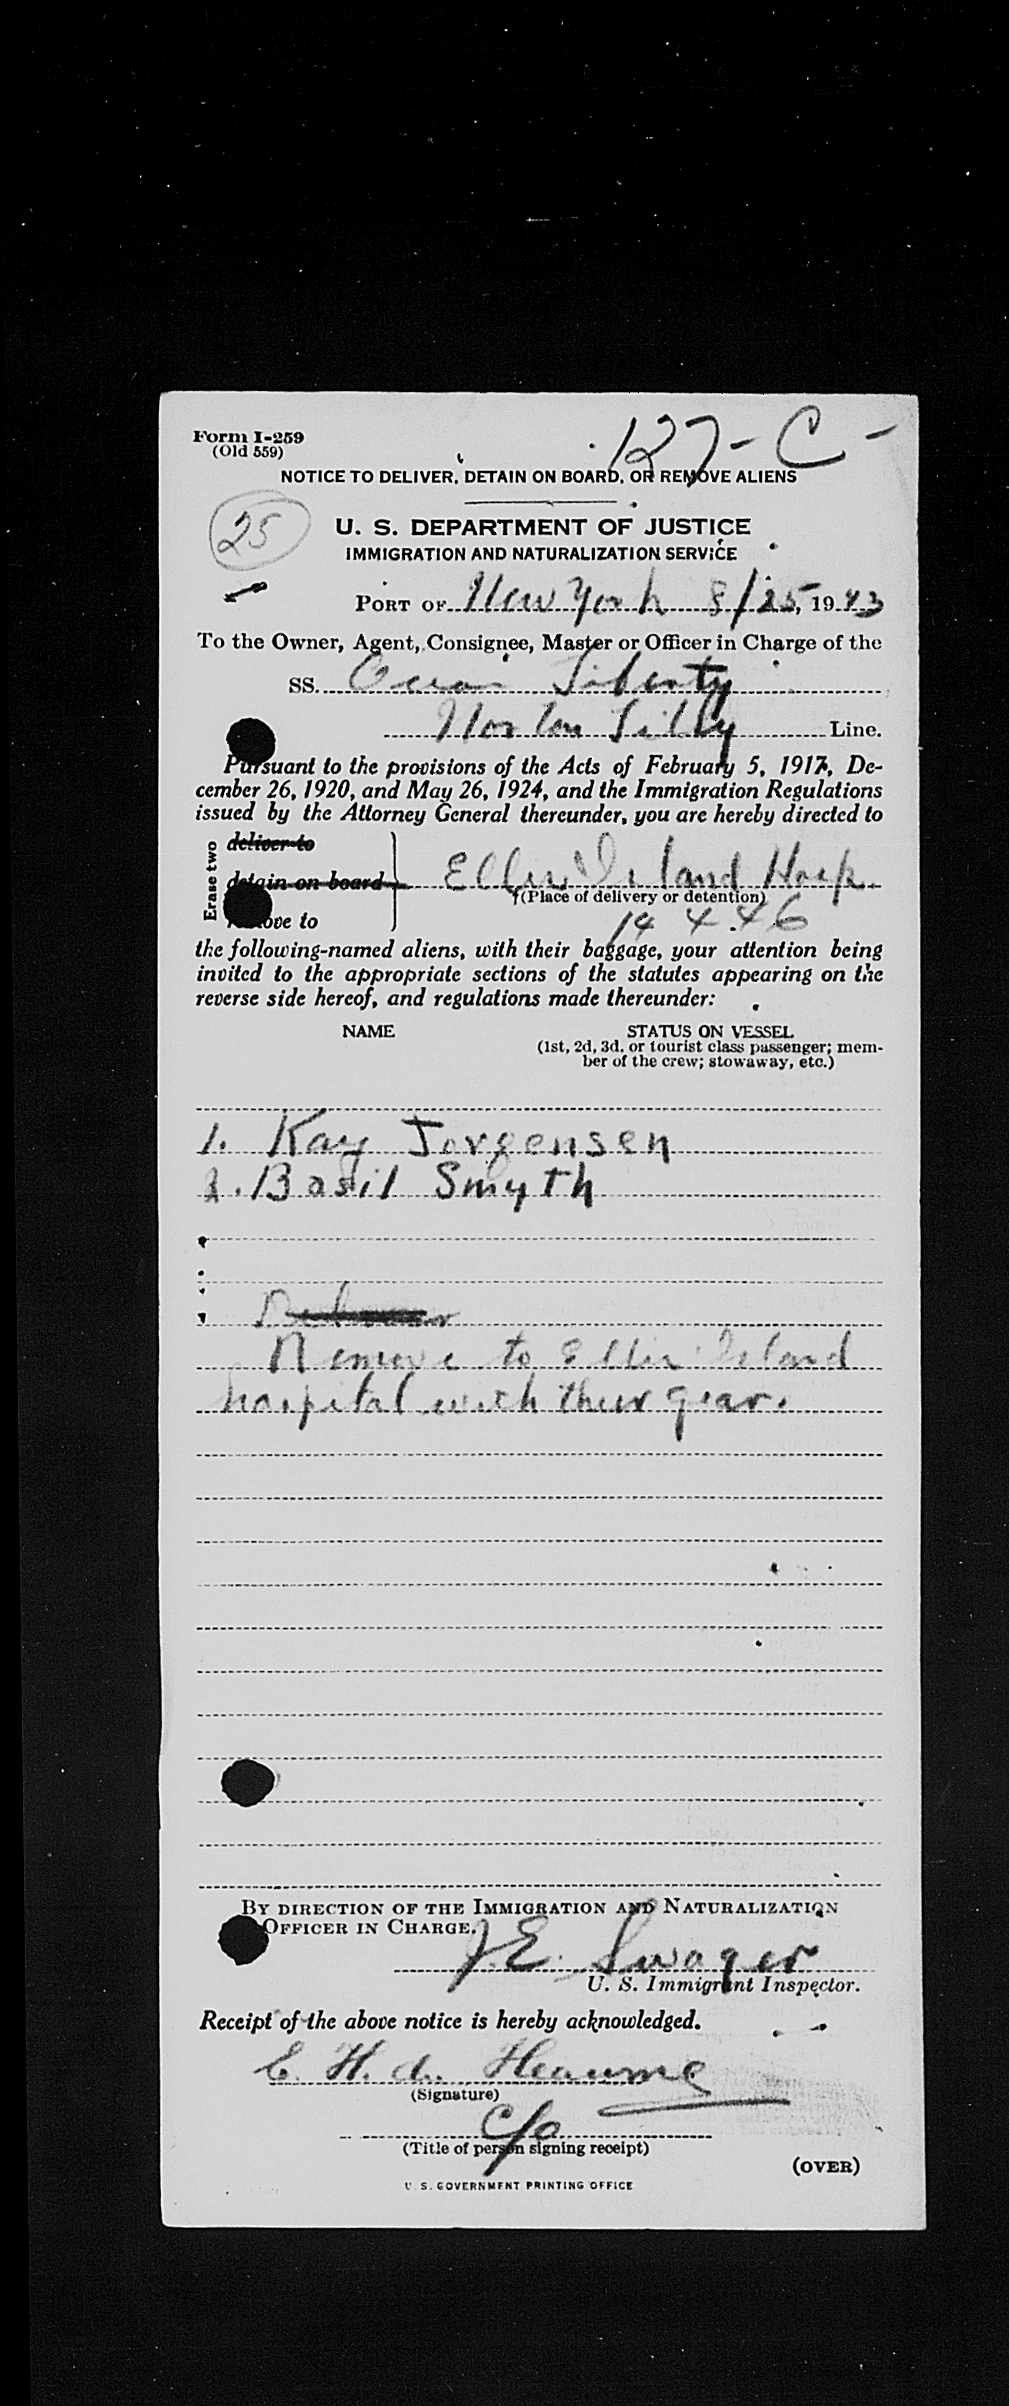 Form I-259
(Old 559)
127-C-
NOTICE TO DELIVER, DETAIN ON BOARD, OR REMOVE ALIENS
25
U. S. DEPARTMENT OF JUSTICE
IMMIGRATION AND NATURALIZATION SERVICE
PORT OF New York 8/25, 1943
To the Owner, Agent, Consignee, Master or Officer in Charge of the
SS. Ocean Liberty
Norton Lilly Line.
Pursuant to the provisions of the Acts of February 5, 1917, De-
cember 26, 1920, and May 26, 1924, and the Immigration Regulations
issued by the Attorney General thereunder, you are hereby directed to
Erase two
deliver to
detain on board
remove to
Ellis Island Hosp.
(Place of delivery or detention)
14 446
the following-named aliens, with their baggage, your attention being
invited to the appropriate sections of the statutes appearing on the
reverse side hereof, and regulations made thereunder:
NAME
STATUS ON VESSEL
(1st, 2d, 3d, or tourist class passenger; mem-
ber of the crew; stowaway, etc.)
1. Kay Jorgensen
2. Basil Smyth
Remove to Ellis Island
hospital with their gear.
BY DIRECTION OF THE IMMIGRATION AND NATURALIZATION
OFFICER IN CHARGE.
J.E. Swager
U. S. Immigrant Inspector.
Receipt of the above notice is hereby acknowledged.
E. H. de Heaume
(Signature)
C/O
(Title of person signing receipt)
(OVER)
U. S. GOVERNMENT PRINTING OFFICE